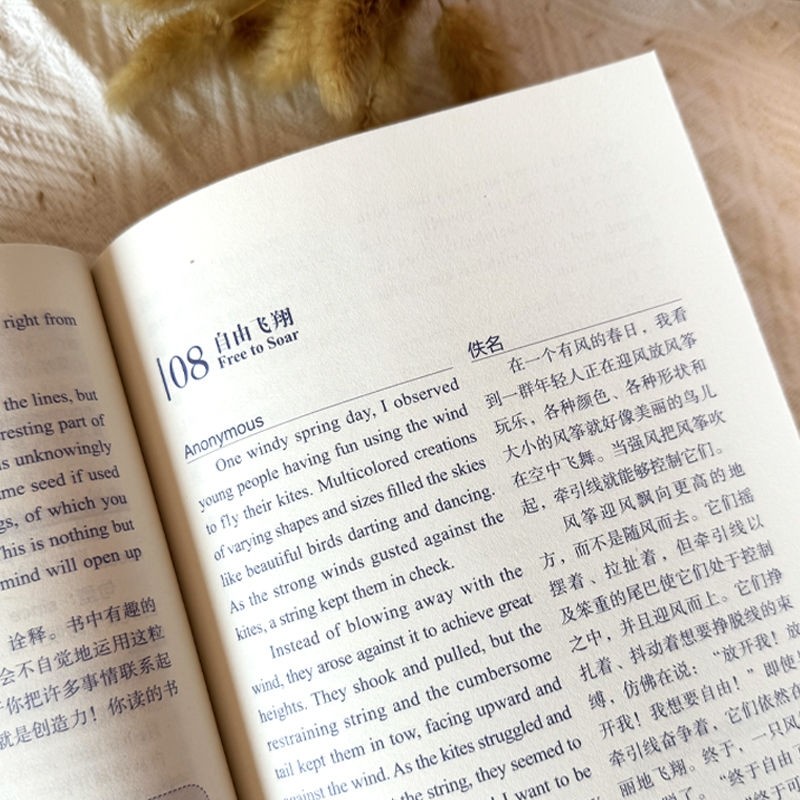 right from
the lines, but
resting part of
is unknowingly
me seed if used
gs, of which you
This is nothing but
mind will open up
诠释。书中有趣的
会不自觉地运用这粒
你把许多事情联系起
就是创造力！你读的书
08 自由飞翔
Free to Soar
Anonymous
One windy spring day, I observed
young people having fun using the wind
to fly their kites. Multicolored creations
of varying shapes and sizes filled the skies
like beautiful birds darting and dancing.
As the strong winds gusted against the
kites, a string kept them in check.
Instead of blowing away with the
wind, they arose against it to achieve great
heights. They shook and pulled, but the
restraining string and the cumbersome
tail kept them in tow, facing upward and
against the wind. As the kites struggled and
the string, they seemed to
I want to be
佚名
在一个有风的春日，我看
到一群年轻人正在迎风放风筝
玩乐，各种颜色、各种形状和
大小的风筝就好像美丽的鸟儿
在空中飞舞。当强风把风筝吹
起，牵引线就能够控制它们。
风筝迎风飘向更高的地
方，而不是随风而去。它们摇
摆着、拉扯着，但牵引线以
及笨重的尾巴使它们处于控制
之中，并且迎风而上。它们挣
扎着、抖动着想要挣脱线的束
缚，仿佛在说：“放开我！放
开我！我想要自由！”即使
牵引线奋争着，它们依然在
丽地飞翔。终于，一只风
“终于自由